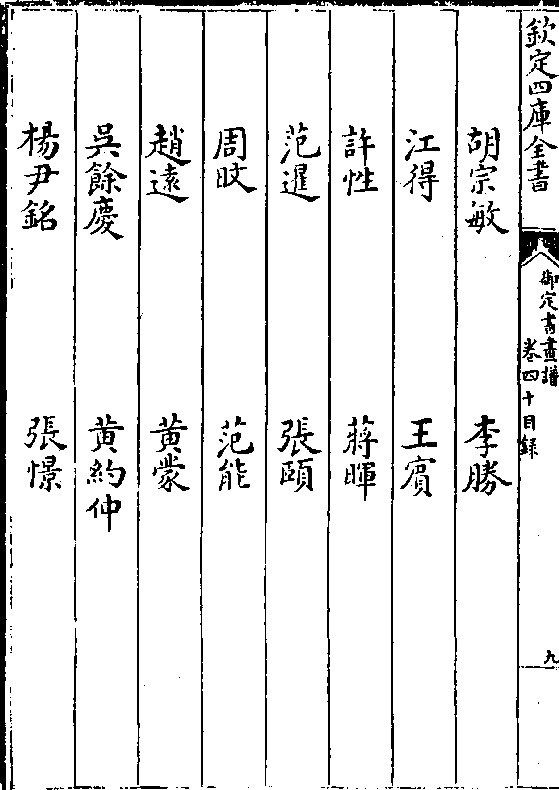 欽定四庫全書
御定書畫譜
卷四十目録
九
胡宗敏 李勝
江得 王賓
許性 蔣暉
范暹 張頤
周旼 范能
趙遠 黄蒙
吳餘慶 黄約仲
楊尹銘 張憬